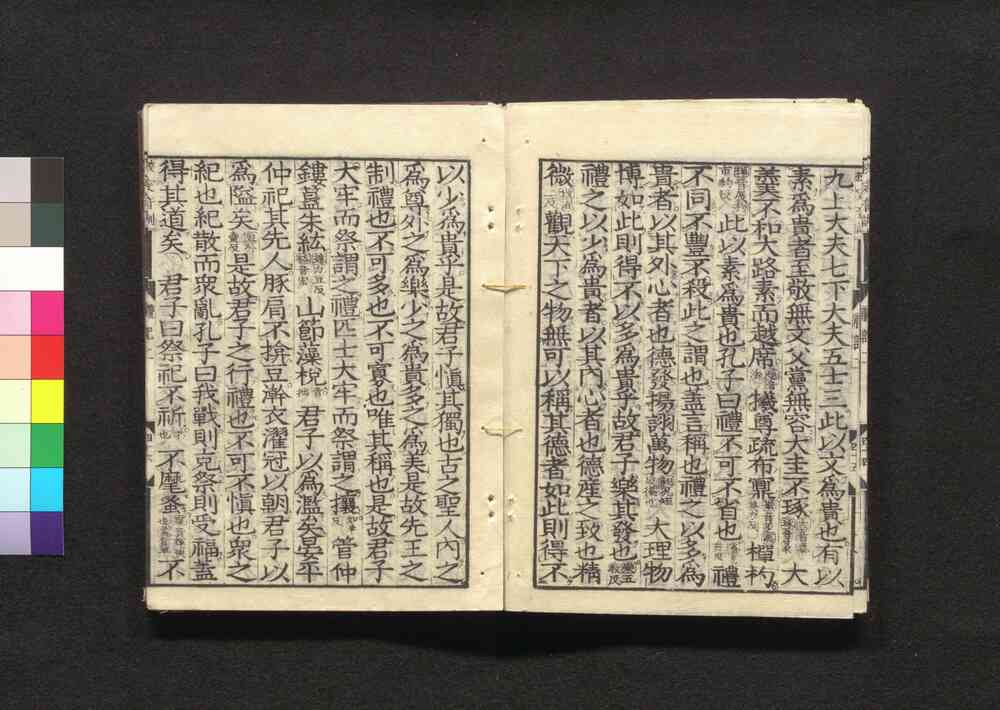 九上大夫七下大夫五士三此以文為貴也有以
素為貴者至敬無文父黨無容大圭不琢大
羹不和大路素而越席犧尊疏布鼏樿杓
此以素為貴也孔子曰禮不可不省也禮
不同不豐不殺此之謂也蓋言稱也禮之以多為
貴者以其外心者也德發揚詡萬物大理物
博如此則得不以多為貴乎故君子樂其發也
禮之以少為貴者以其內心者也德產之致也精
微觀天下之物無可以稱其德者如此則得不
以少為貴乎是故君子慎其獨也古之聖人內之
為尊外之為樂少之為貴多之為美是故先王之
制禮也不可多也不可寡也唯其稱也是故君子
大牢而祭謂之禮匹士大牢而祭謂之攘管仲
鏤簋朱紘山節藻梲君子以為濫矣晏平
仲祀其先人豚肩不揜豆澣衣濯冠以朝君子以
為隘矣是故君子之行禮也不可不慎也衆之
紀也紀散而衆亂孔子曰我戰則克祭則受福蓋
得其道矣 君子曰祭祀不祈不麾蚤不